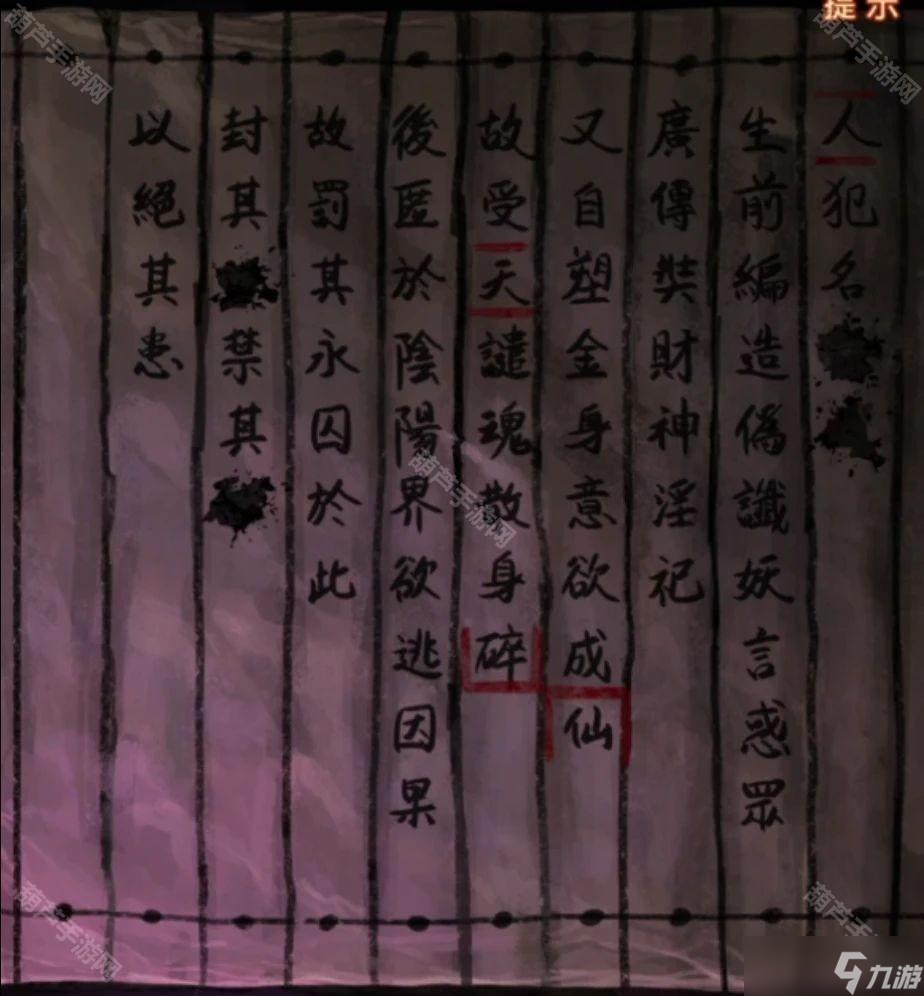 提示
人犯名
生前編造偽讖妖言惑眾
廣傳奘財神淫祀
又自塑金身意欲成仙
故受天譴魂散身碎
後匿於陰陽界欲逃因果
故罰其永囚於此
封其禁其
以絕其患
葫芦手游网
葫芦手游网
葫芦手游网
葫芦手游网
葫芦手游网
九游